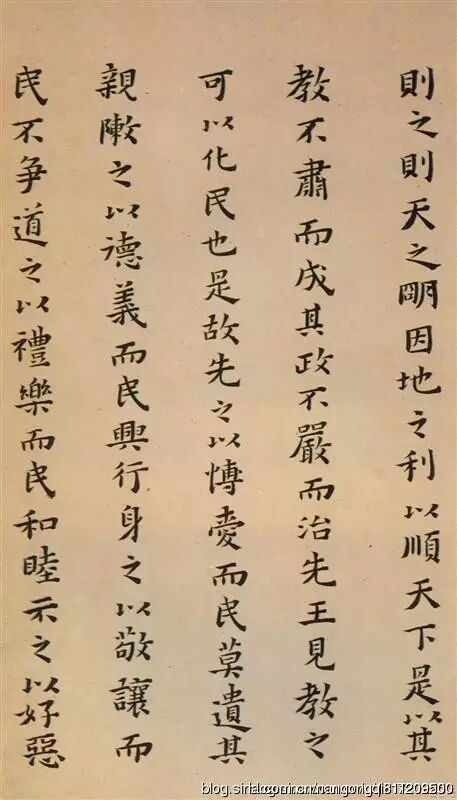 則之則天之明因地之利以順天下是以其
教不肅而成其政不嚴而治先王見教之
可以化民也是故先之以博愛而民莫遺其
親敶之以德義而民興行身之以敬讓而
民不爭道之以禮樂而民和睦示之以好惡